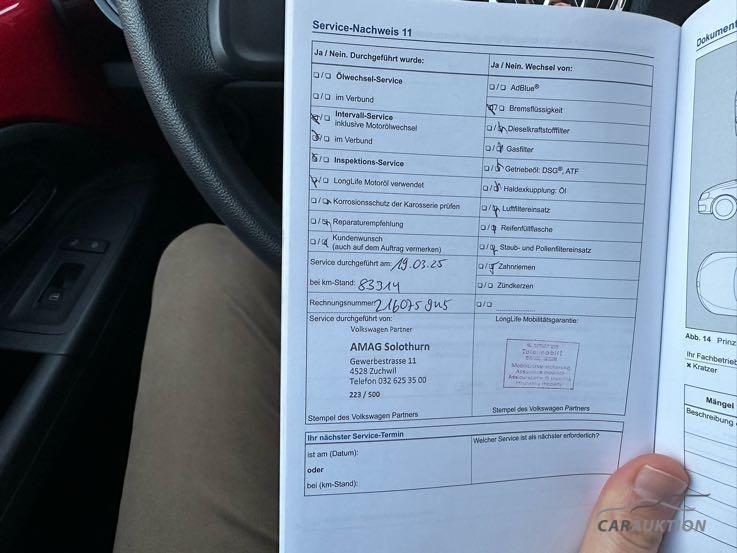 Service-Nachweis 11
Ja / Nein. Durchgeführt wurde:
Ölwechsel-Service
im Verbund
Intervall-Service
inklusive Motorölwechsel
im Verbund
Inspektions-Service
LongLife Motoröl verwendet
Korrosionsschutz der Karosserie prüfen
Reparaturempfehlung
Kundenwunsch
(auch auf dem Auftrag vermerken)
Service durchgeführt am: 19.03.25
bei km-Stand: 83914
Rechnungsnummer:
Service durchgeführt von:
Volkswagen Partner
AMAG Solothurn
Gewerbestrasse 11
4528 Zuchwil
Telefon 032 625 35 00
223 / 500
Stempel des Volkswagen Partners
Ja / Nein. Wechsel von:
AdBlue®
Bremsflüssigkeit
Dieselkraftstofffilter
Gasfilter
Getriebeöl: DSG®, ATF
Haldexkupplung: Öl
Luftfiltereinsatz
Reifenfüllflasche
Staub- und Pollenfiltereinsatz
Zahnriemen
Zündkerzen
LongLife Mobilitätsgarantie:
Totalmobil!
Stempel des Volkswagen Partners
Ihr nächster Service-Termin
ist am (Datum):
oder
bei (km-Stand):
Welcher Service ist als nächster erforderlich?
Dokument
Abb. 14 Prinz
Ihr Fachbetrieb
× Kratzer
Mängel
Beschreibung
CARAUKTION